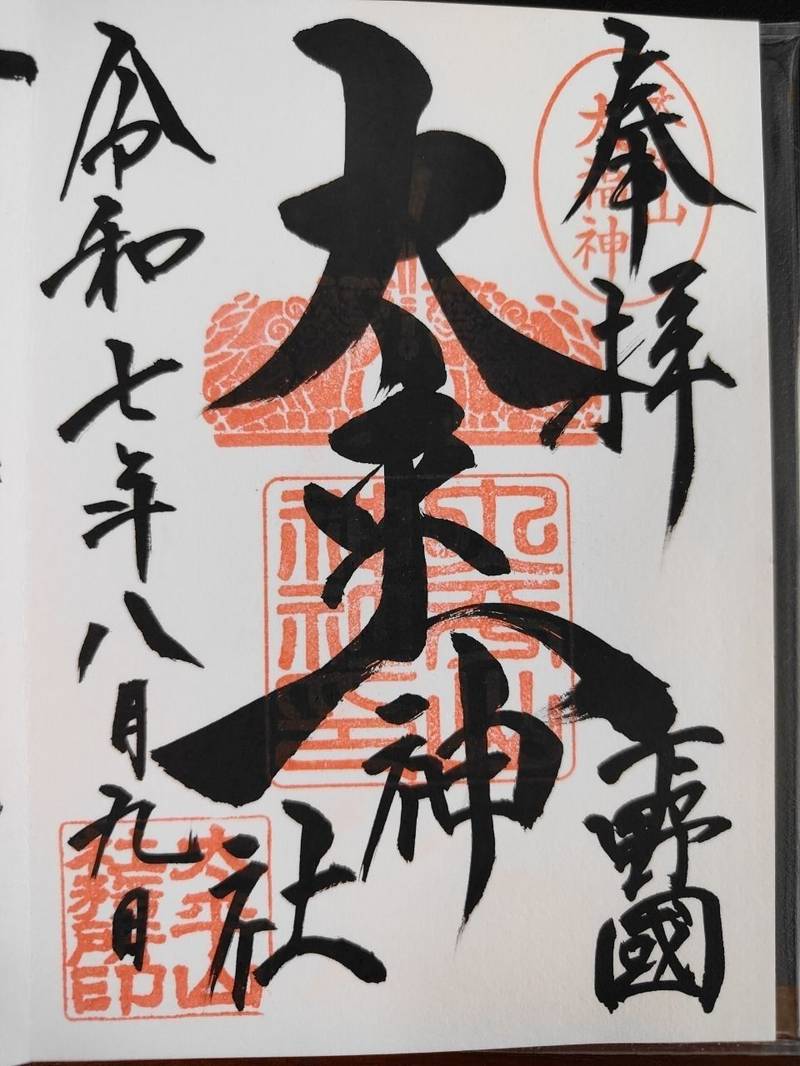 奉拝
下野國
太平山
大福神
太平山神社
令和七年八月九日
太平山
社務所印